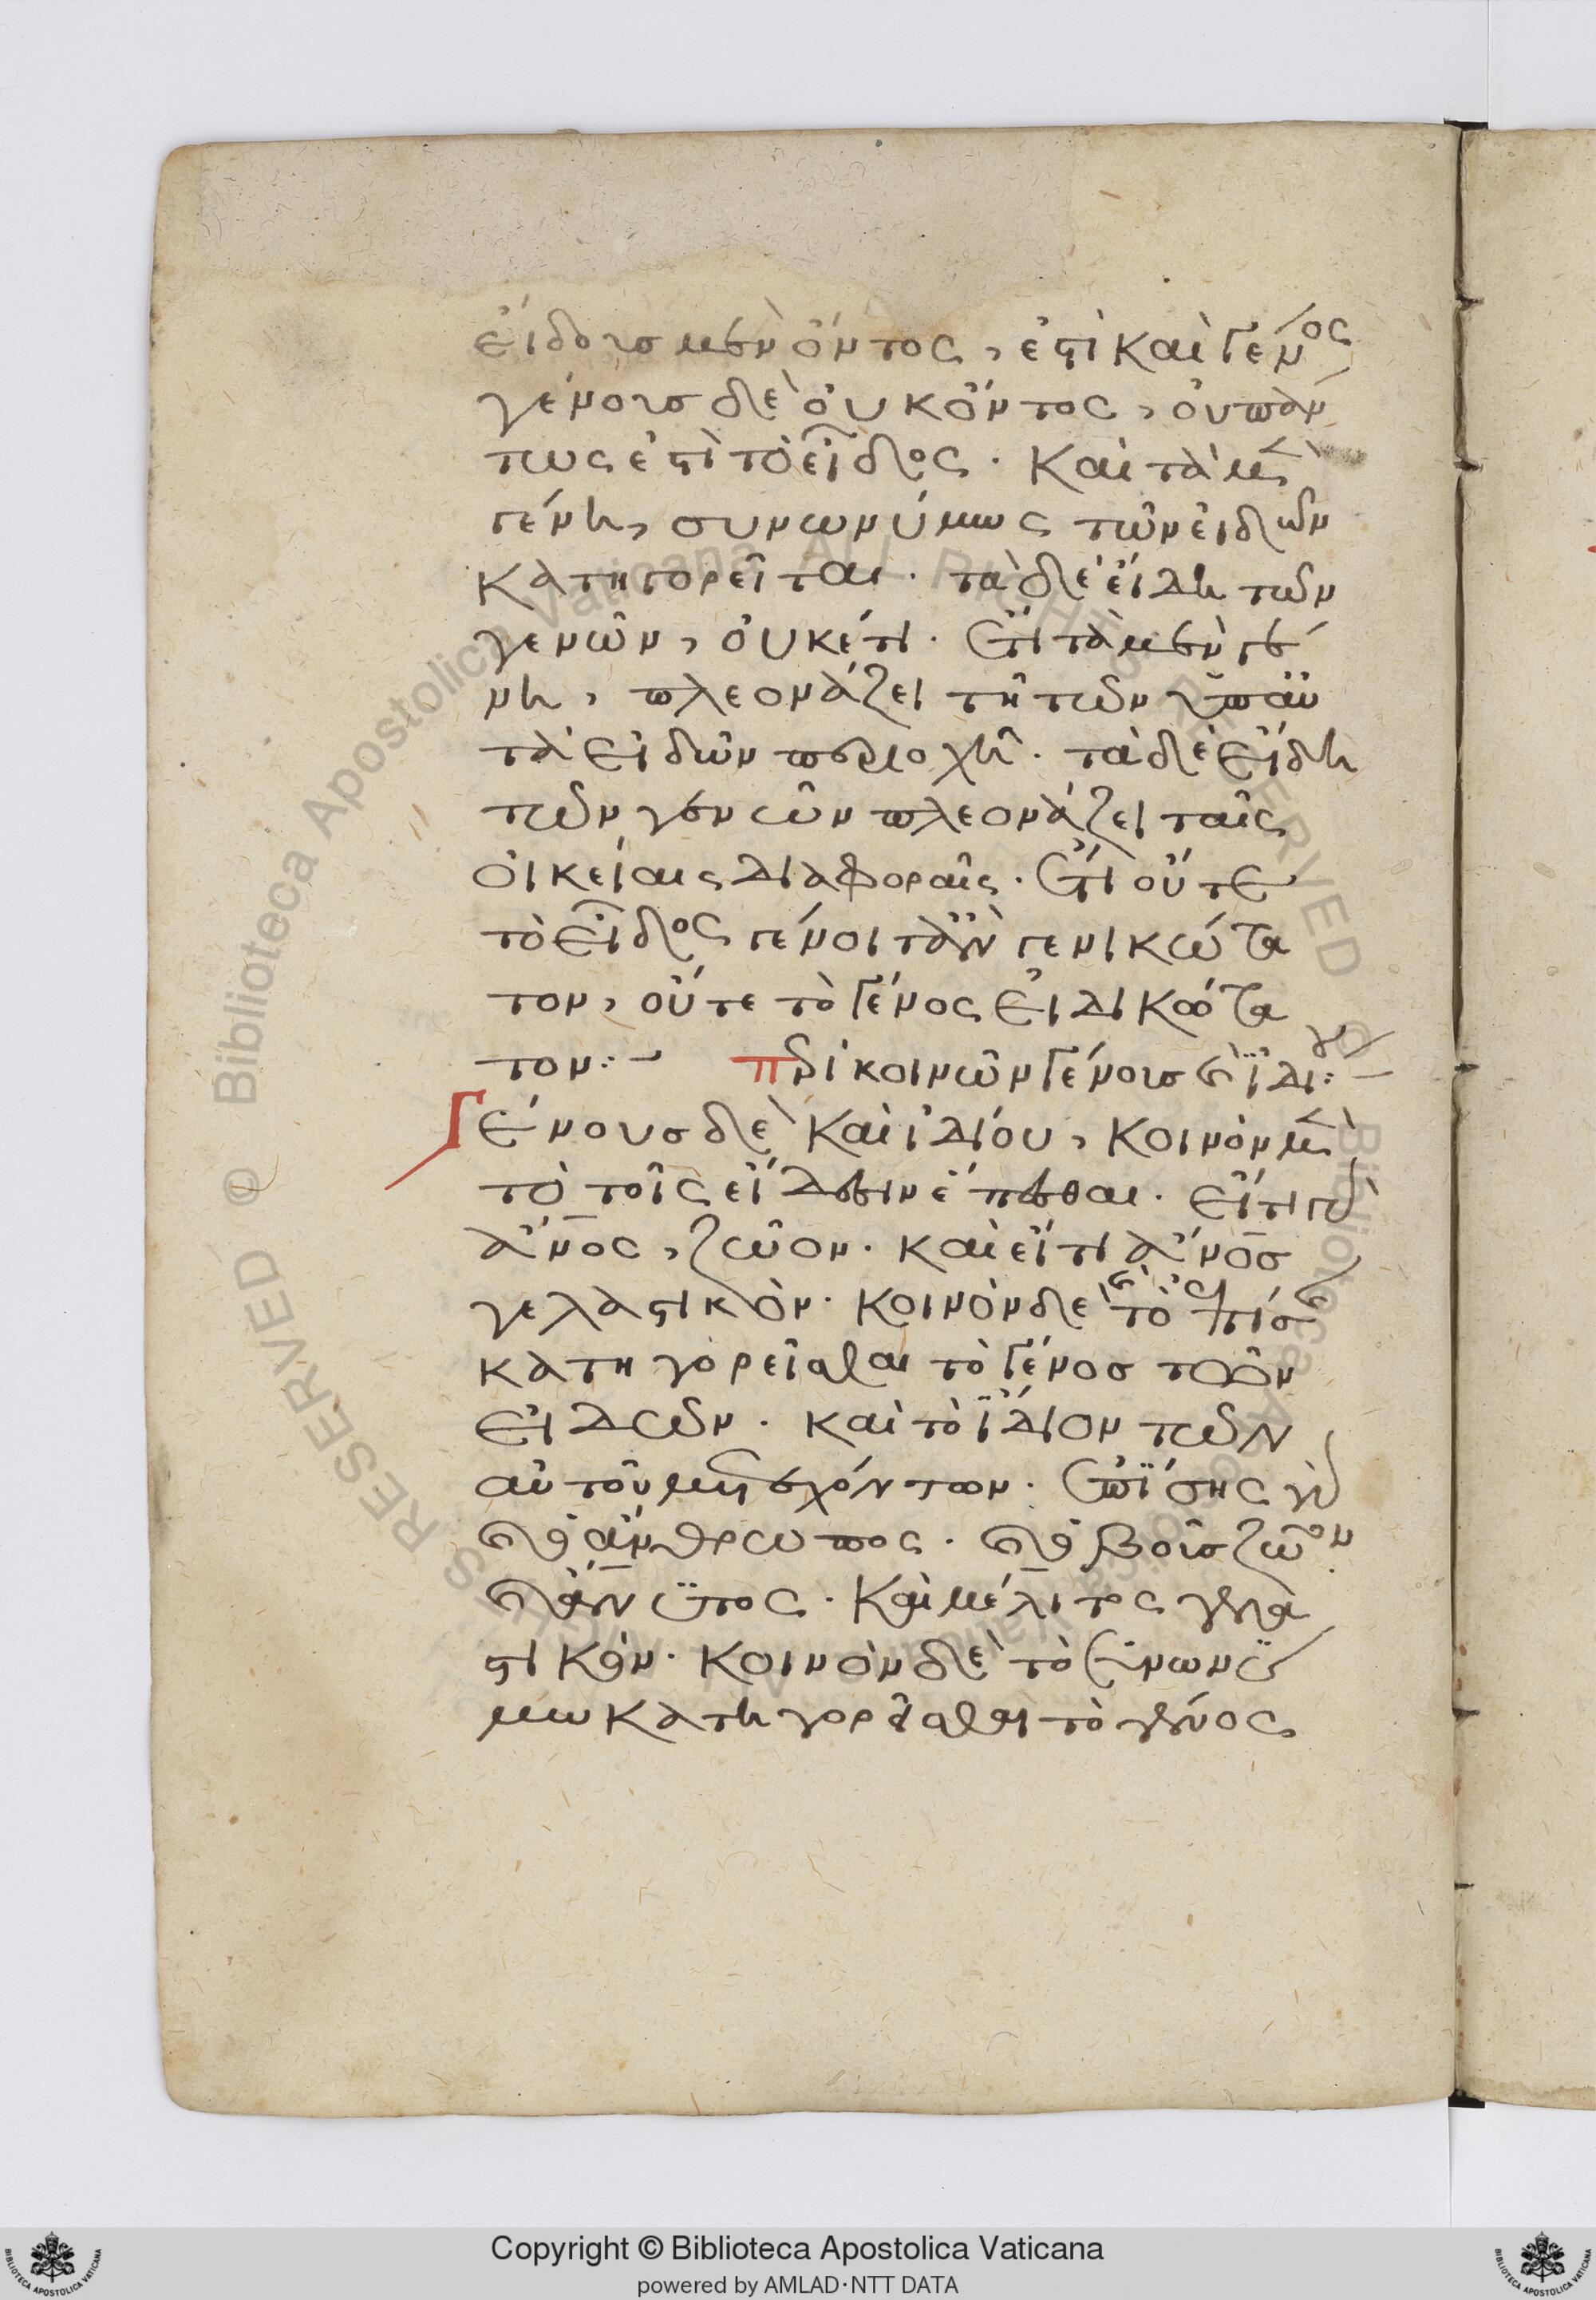 εἴδους μὲν ὄντος, ἐστὶ καὶ γένος
γένους δὲ οὐκ ὄντος, οὐ πάν
τως ἐστὶ τὸ εἶδος. Καὶ τὰ μὲν
γένη, συνωνύμως τῶν εἰδῶν
κατηγορεῖται. τὰ δὲ εἴδη τῶν
γενῶν, οὐκέτι. ἔτι τὰ μὲν γέ
νη, πλεονάζει τῇ τῶν ὑπ' αὐ
τὰ εἰδῶν περιοχῇ. τὰ δὲ εἴδη
τῶν γενῶν πλεονάζει ταῖς
οἰκείαις διαφοραῖς. ἔτι οὔτε
τὸ εἶδος γένοιτ' ἂν γενικώτα
τον, οὔτε τὸ γένος εἰδικώτα
τον:- περὶ κοινῶν γένους καὶ ἰδίου:-
Γένους δὲ καὶ ἰδίου, κοινὸν μὲν
τὸ τοῖς εἴδεσιν ἕπεσθαι. εἴ τι γὰρ
ἄνος, ζῶον. καὶ εἴ τι ἄνος
γελαστικόν. κοινὸν δὲ καὶ τὸ ἐπίσης
κατηγορεῖσθαι τὸ γένος τῶν
εἰδῶν. καὶ τὸ ἴδιον τῶν
αὐτοῦ μετεχόντων. ἐπίσης γὰρ
καὶ ὁ ἄνθρωπος. καὶ ὁ βοῦς ζῶον
καὶ ἄνυτος. Καὶ μέλιτος γελα
στικόν. κοινὸν δὲ τὸ συνωνύ
μω κατηγορεῖσθαι τὸ γένος
Copyright © Biblioteca Apostolica Vaticana
powered by AMLAD·NTT DATA